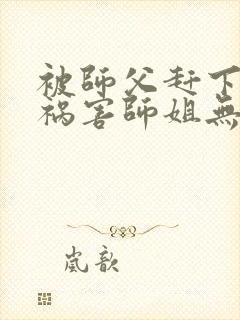 被師父赶下
祸害師姐無
嵐歆